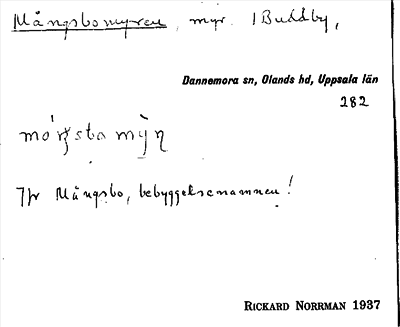 Mångsbomyren, myr. i Buddby,
Dannemora sn, Olands hd, Uppsala län
282
Jfr Mångsbo, bebyggelsenamnen!
RICKARD NORRMAN 1937